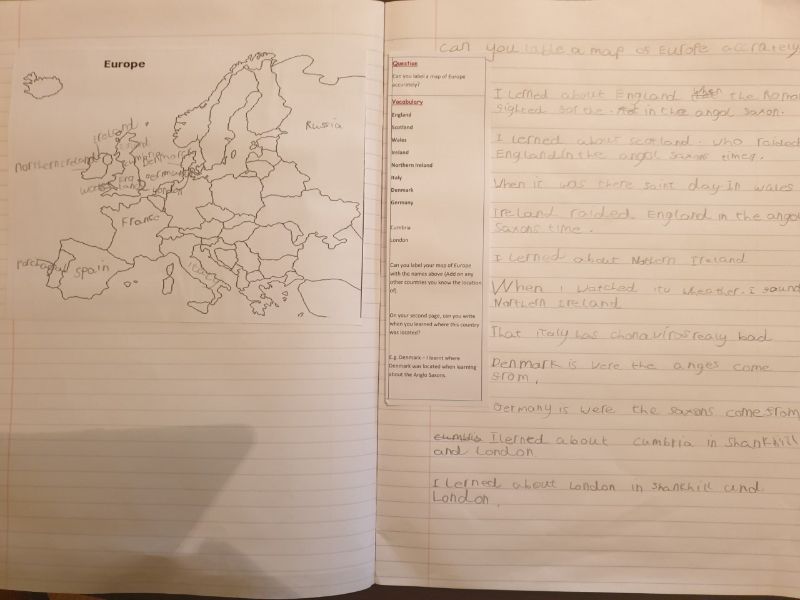 Europe
Ireland
Russia
Northern Ireland
Denmark
Germany
London
France
Portugal
Spain
Italy
Question
Can you label a map of Europe
accurately?
Vocabulary
England
Scotland
Wales
Ireland
Northern Ireland
Italy
Denmark
Germany
Cumbria
London
Can you label your map of Europe
with the names above (Add on any
other countries you know the location
of)
On your second page, can you write
when you learned where this country
was located?
E.g. Denmark – I learnt where
Denmark was located when learning
about the Anglo Saxons.
can you lable a map of Europe accrately
I lerned about England when the Roman
sighted for the in the angol saxon.
I lerned about scotland. who raided
England in the angol saxons times.
When it was there saint day in wales
Ireland raided England in the angol
Saxons time.
I lerned about Nothern Ireland
When I watched itv wheather. i found
Northern Ireland
That italy has chonavirosrealy bad
Denmark is were the anges come
from.
Germany is were the saxons come from
cumbria I lerned about cumbria in Shankhill
and London
I lerned about London in shankhill and
London.